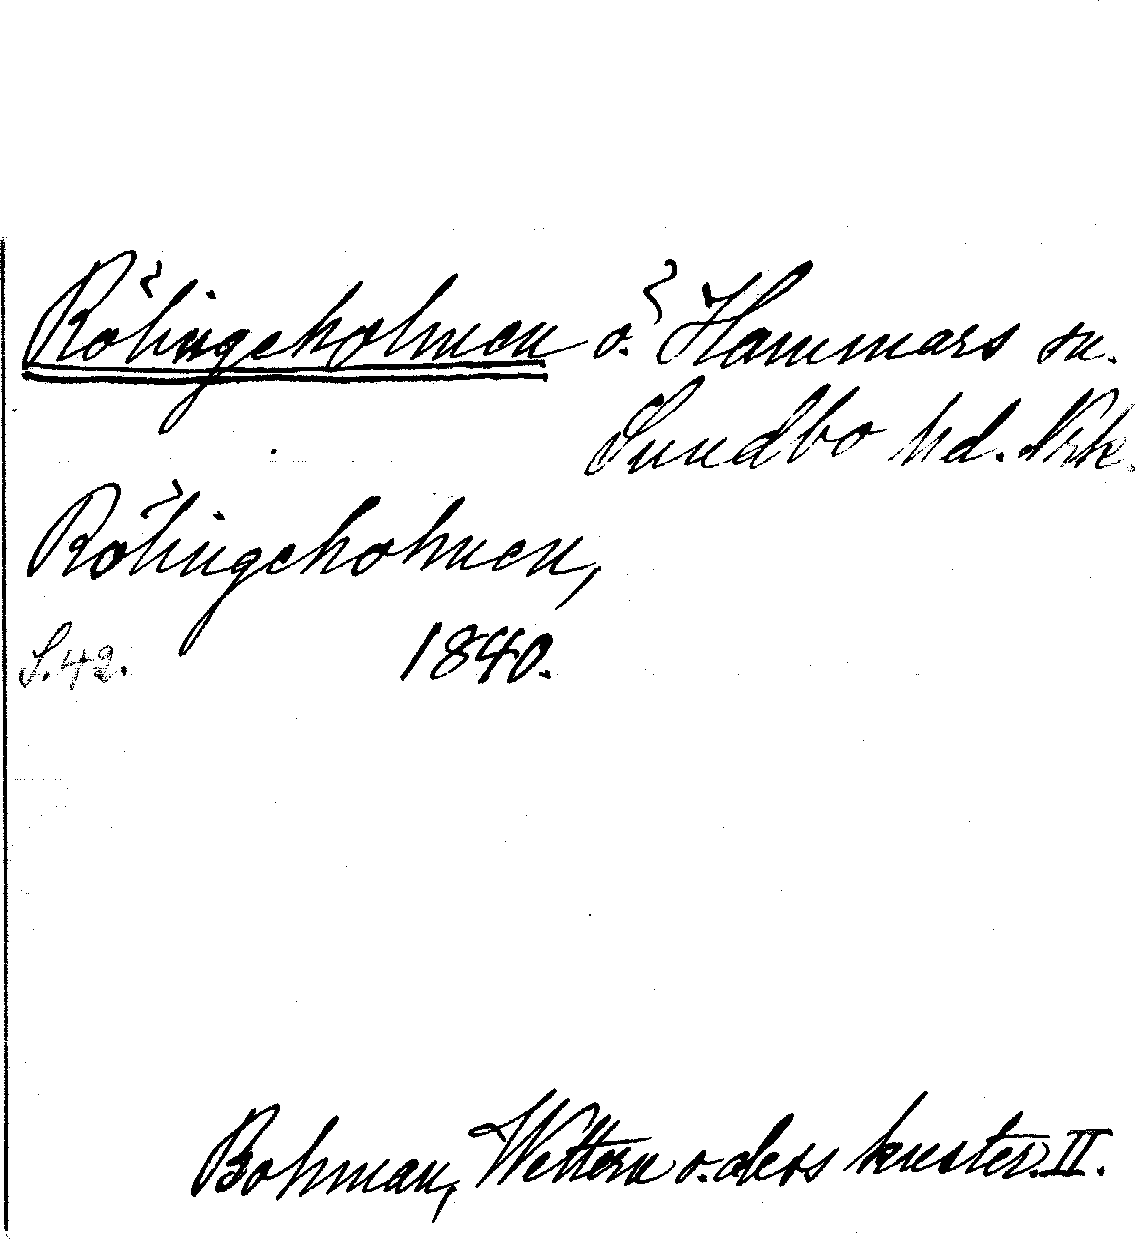 Rölingeholmen ö. Hammars sn.
Sundbo hd. Nke.
Rölingeholmen,
S. 42. 1840.
Bohman, Wettern o. dess kuster. II.